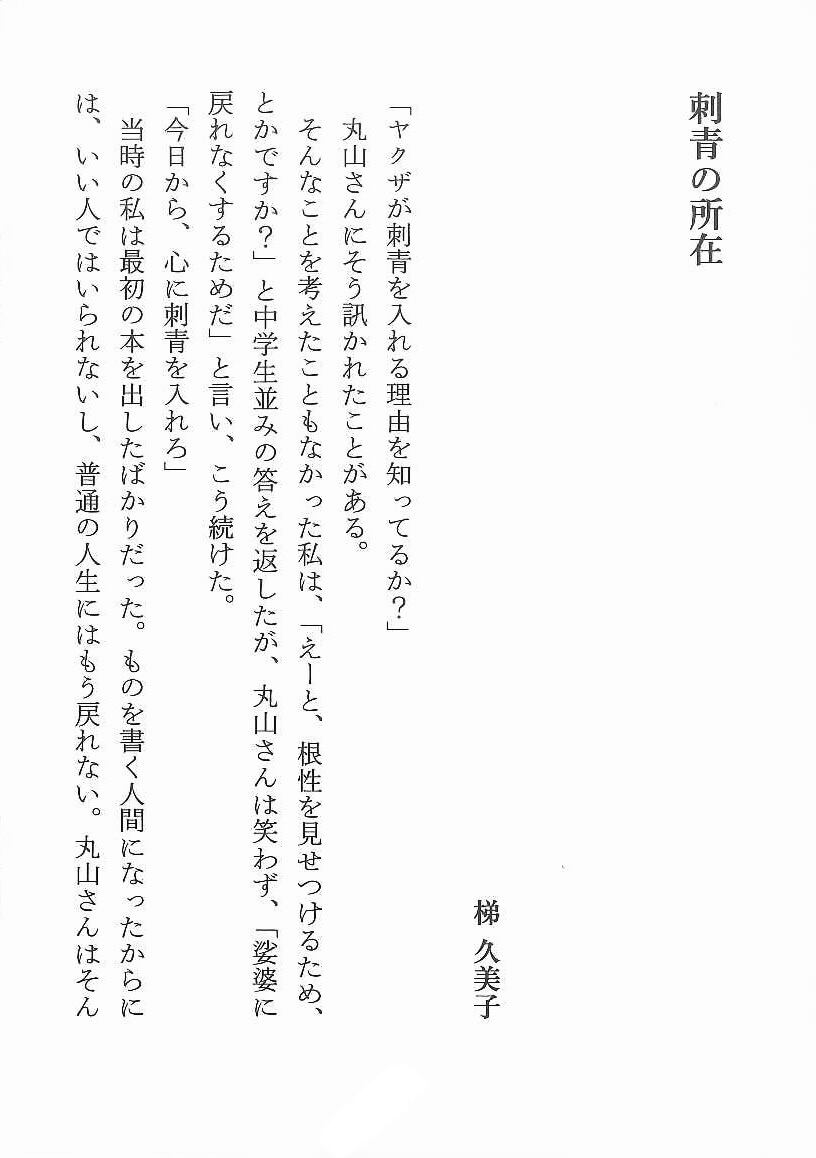 刺青の所在
梯 久美子
「ヤクザが刺青を入れる理由を知ってるか?」
丸山さんにそう訊かれたことがある。
そんなことを考えたこともなかった私は、「えーと、根性を見せつけるため、
とかですか?」と中学生並みの答えを返したが、丸山さんは笑わず、「娑婆に
戻れなくするためだ」と言い、こう続けた。
「今日から、心に刺青を入れろ」
当時の私は最初の本を出したばかりだった。ものを書く人間になったからに
は、いい人ではいられないし、普通の人生にはもう戻れない。丸山さんはそん